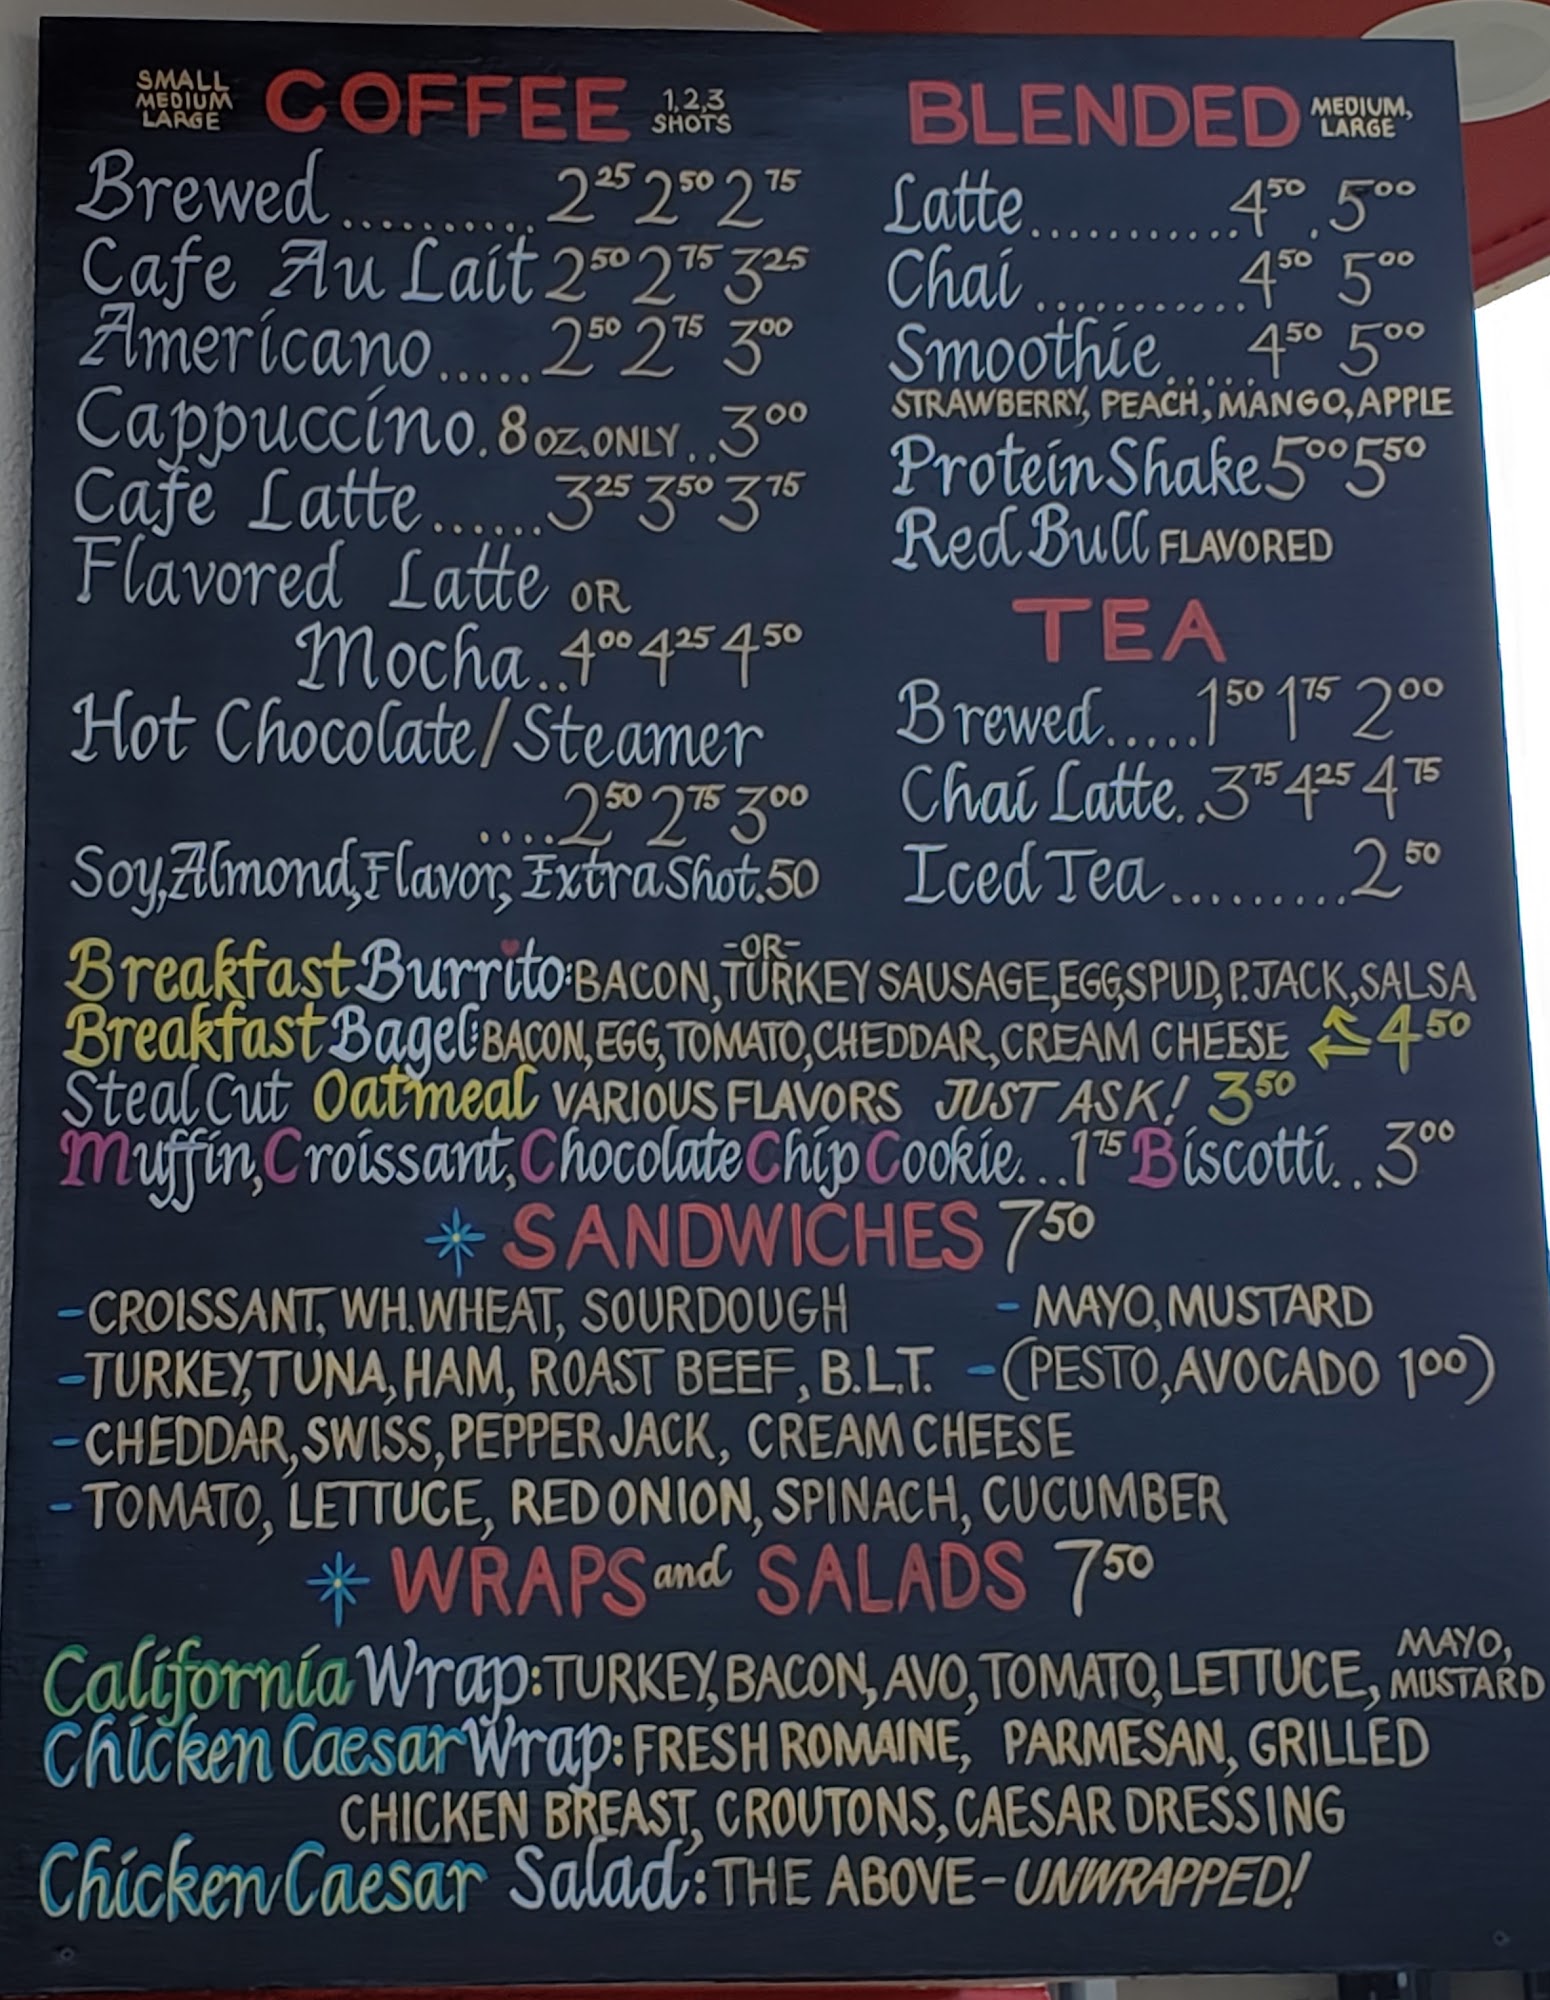 SMALL
MEDIUM
LARGE
COFFEE
1,2,3
SHOTS
Brewed.......... 2 25 2 50 2 75
Cafe Au Lait 2 50 2 75 3 25
Americano..... 2 50 2 75 3 00
Cappuccino. 8 OZ. ONLY.. 3 00
Cafe Latte...... 3 25 3 50 3 75
Flavored Latte OR
Mocha.. 4 00 4 25 4 50
Hot Chocolate/Steamer
.... 2 50 2 75 3 00
Soy, Almond, Flavor, Extra Shot .50
BLENDED
MEDIUM,
LARGE
Latte........... 4 50 . 5 00
Chai........... 4 50 5 00
Smoothie..... 4 50 5 00
STRAWBERRY, PEACH, MANGO, APPLE
Protein Shake 5 00 5 50
Red Bull FLAVORED
TEA
Brewed..... 1 50 1 75 2 00
Chai Latte.. 3 75 4 25 4 75
Iced Tea......... 2 50
-OR-
Breakfast Burrito: BACON, TURKEY SAUSAGE, EGG, SPUD, P. JACK, SALSA
Breakfast Bagel: BACON, EGG, TOMATO, CHEDDAR, CREAM CHEESE 4 50
Steal Cut Oatmeal VARIOUS FLAVORS JUST ASK! 3 50
Muffin, Croissant, Chocolate Chip Cookie... 1 75 Biscotti... 3 00
SANDWICHES 7 50
- CROISSANT, WH. WHEAT, SOURDOUGH - MAYO, MUSTARD
- TURKEY, TUNA, HAM, ROAST BEEF, B.L.T. - (PESTO, AVOCADO 1 00)
- CHEDDAR, SWISS, PEPPER JACK, CREAM CHEESE
- TOMATO, LETTUCE, RED ONION, SPINACH, CUCUMBER
WRAPS and SALADS 7 50
California Wrap: TURKEY, BACON, AVO, TOMATO, LETTUCE, MAYO, MUSTARD
Chicken Caesar Wrap: FRESH ROMAINE, PARMESAN, GRILLED
CHICKEN BREAST, CROUTONS, CAESAR DRESSING
Chicken Caesar Salad: THE ABOVE - UNWRAPPED!